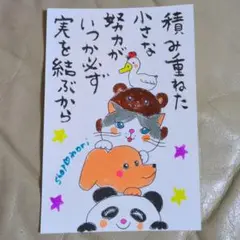 積み重ねた
小さな
努力が
いつか必ず
実を結ぶから